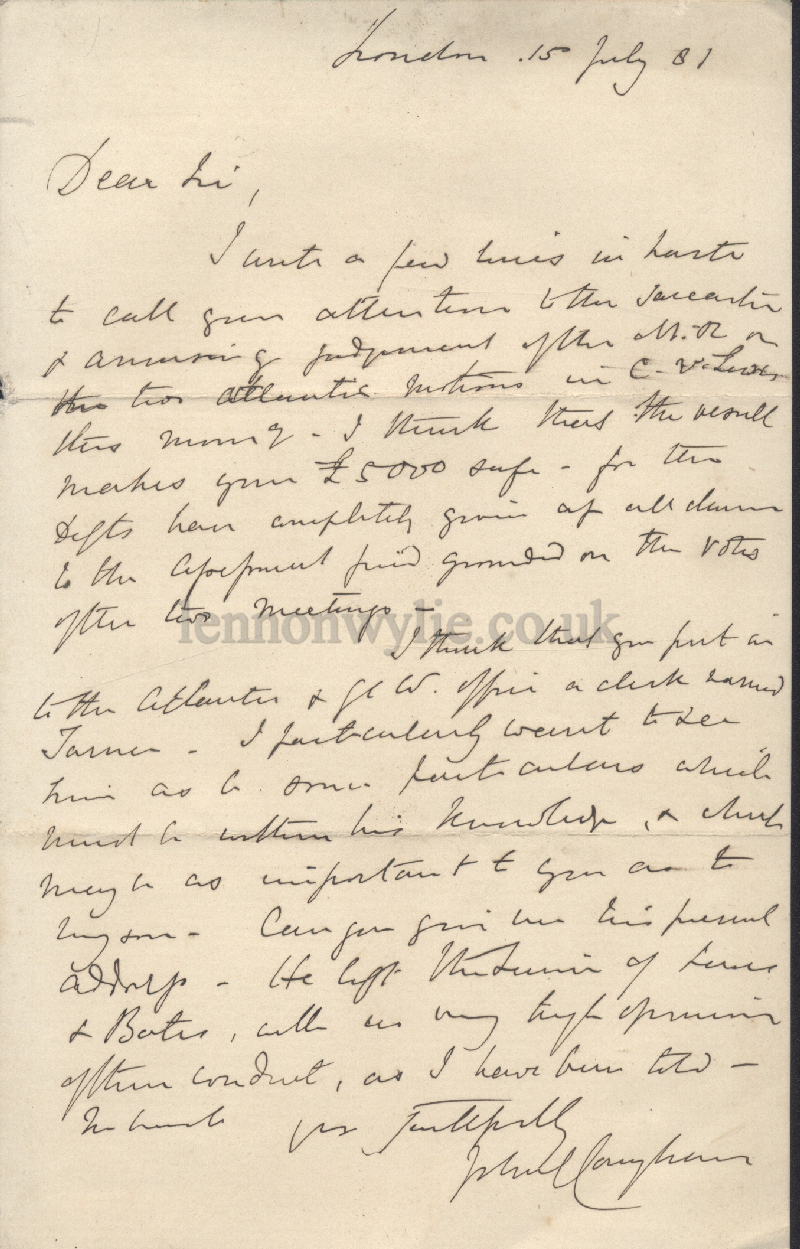 London 15 July 81
Dear Sir,
I write a few lines in haste
to call your attention to the sarcastic
& amusing judgement of the M.R. on
the two Atlantic motions in C. v. Lewis
this morng - I think that the result
makes your £5000 safe - for the
Defts have completely given up all claim
to the fund grounded on the votes
of the two meetings -
lennonwylie.co.uk
I think that you put in
to the Atlantic & Gt W. office a clerk named
Turner - I particularly want to see
him as to some particulars which
must be within his knowledge, & which
may be as important to you as to
myson - Can you give me his present
address - He left the service of Lewis
& Bates, with no very high opinion
of their conduct, as I have been told -
yrs faithfully
John